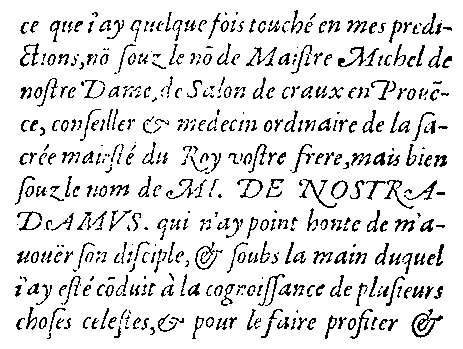 ce que i'ay quelque fois touché en mes predi-
ctions, nõ souz le nõ de Maistre Michel de
nostre Dame, de Salon de craux en Prouẽ-
ce, conseiller & medecin ordinaire de la sa-
crée maiesté du Roy vostre frere, mais bien
souz le nom de M. DE NOSTRA-
DAMVS. qui n'ay point honte de m'a-
uouër son disciple, & soubs la main duquel
i'ay esté cõduit à la cognoissance de plusieurs
choses celestes, & pour le faire profiter &